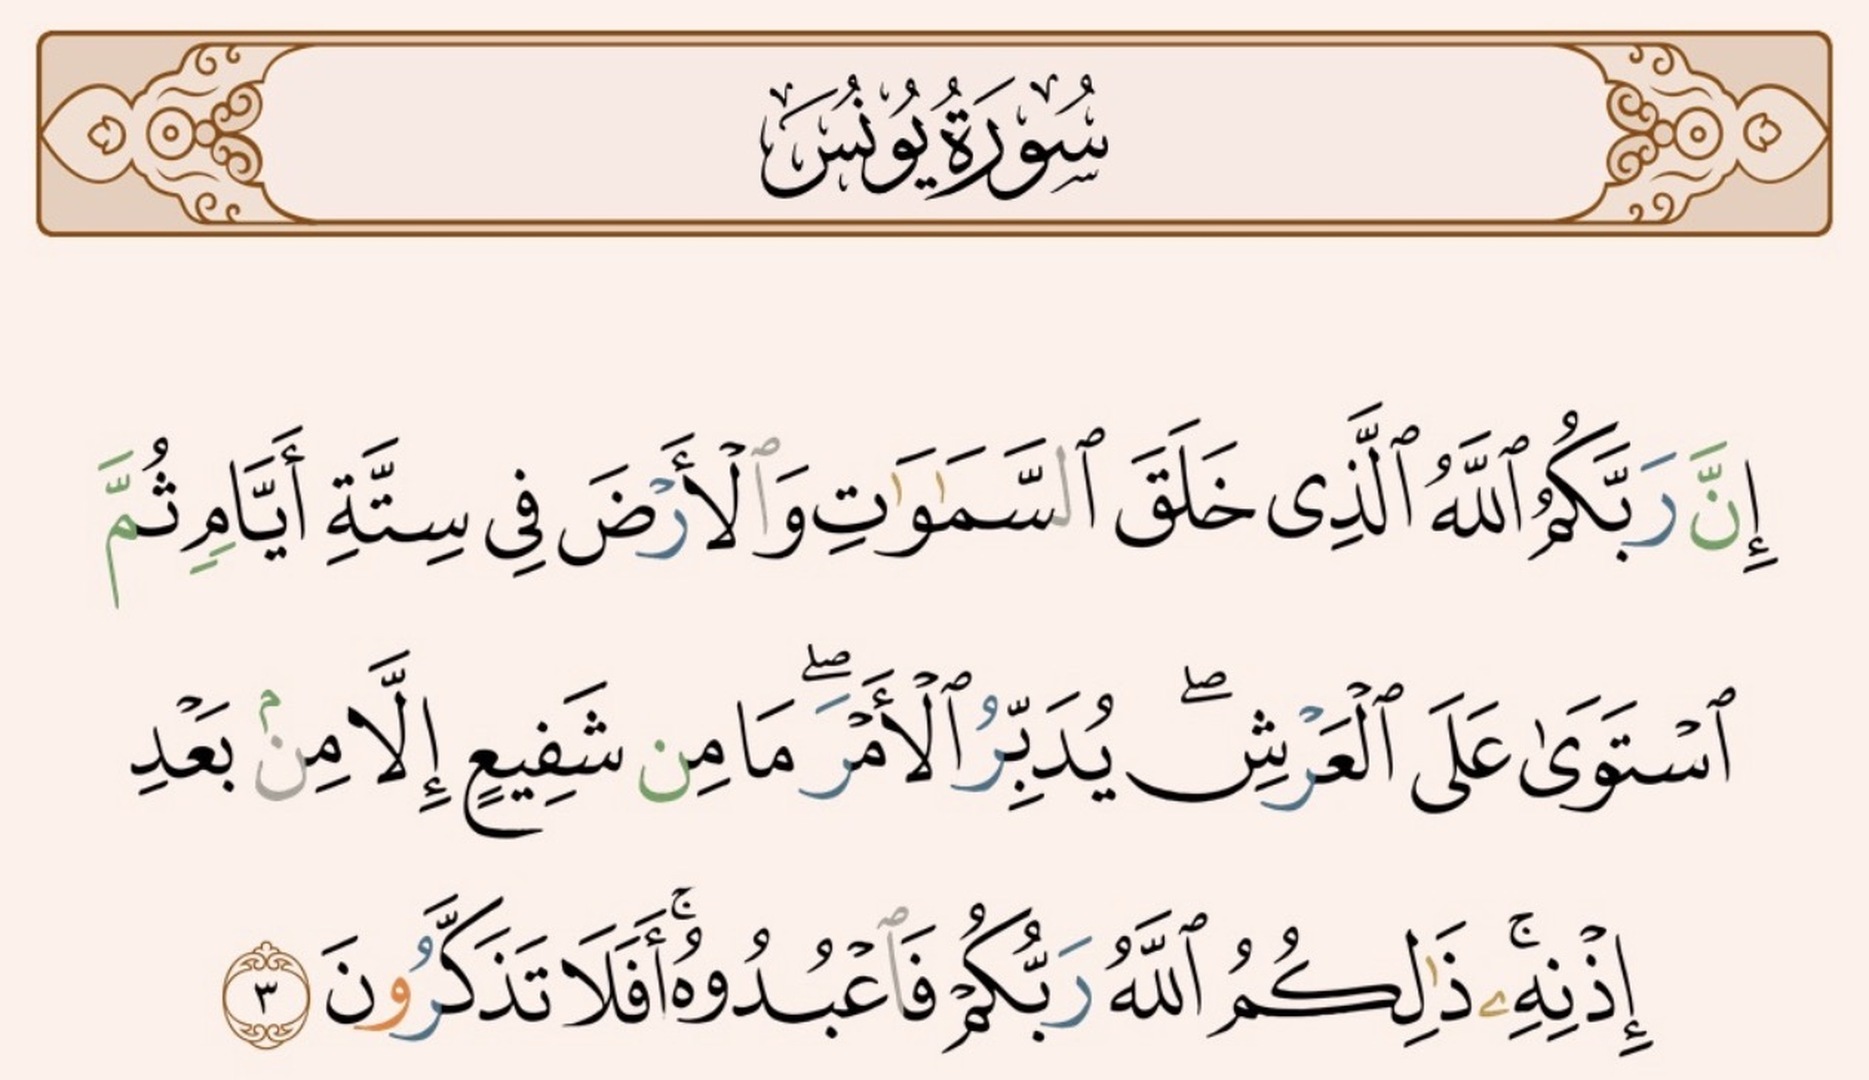 سُورَةُ يُونُسَ
إِنَّ رَبَّكُمُ ٱللَّهُ ٱلَّذِى خَلَقَ ٱلسَّمَـٰوَٰتِ وَٱلْأَرْضَ فِى سِتَّةِ أَيَّامٍ ثُمَّ
ٱسْتَوَىٰ عَلَى ٱلْعَرْشِ ۖ يُدَبِّرُ ٱلْأَمْرَ ۖ مَا مِن شَفِيعٍ إِلَّا مِنۢ بَعْدِ
إِذْنِهِۦ ۚ ذَٰلِكُمُ ٱللَّهُ رَبُّكُمْ فَٱعْبُدُوهُ ۚ أَفَلَا تَذَكَّرُونَ ٣